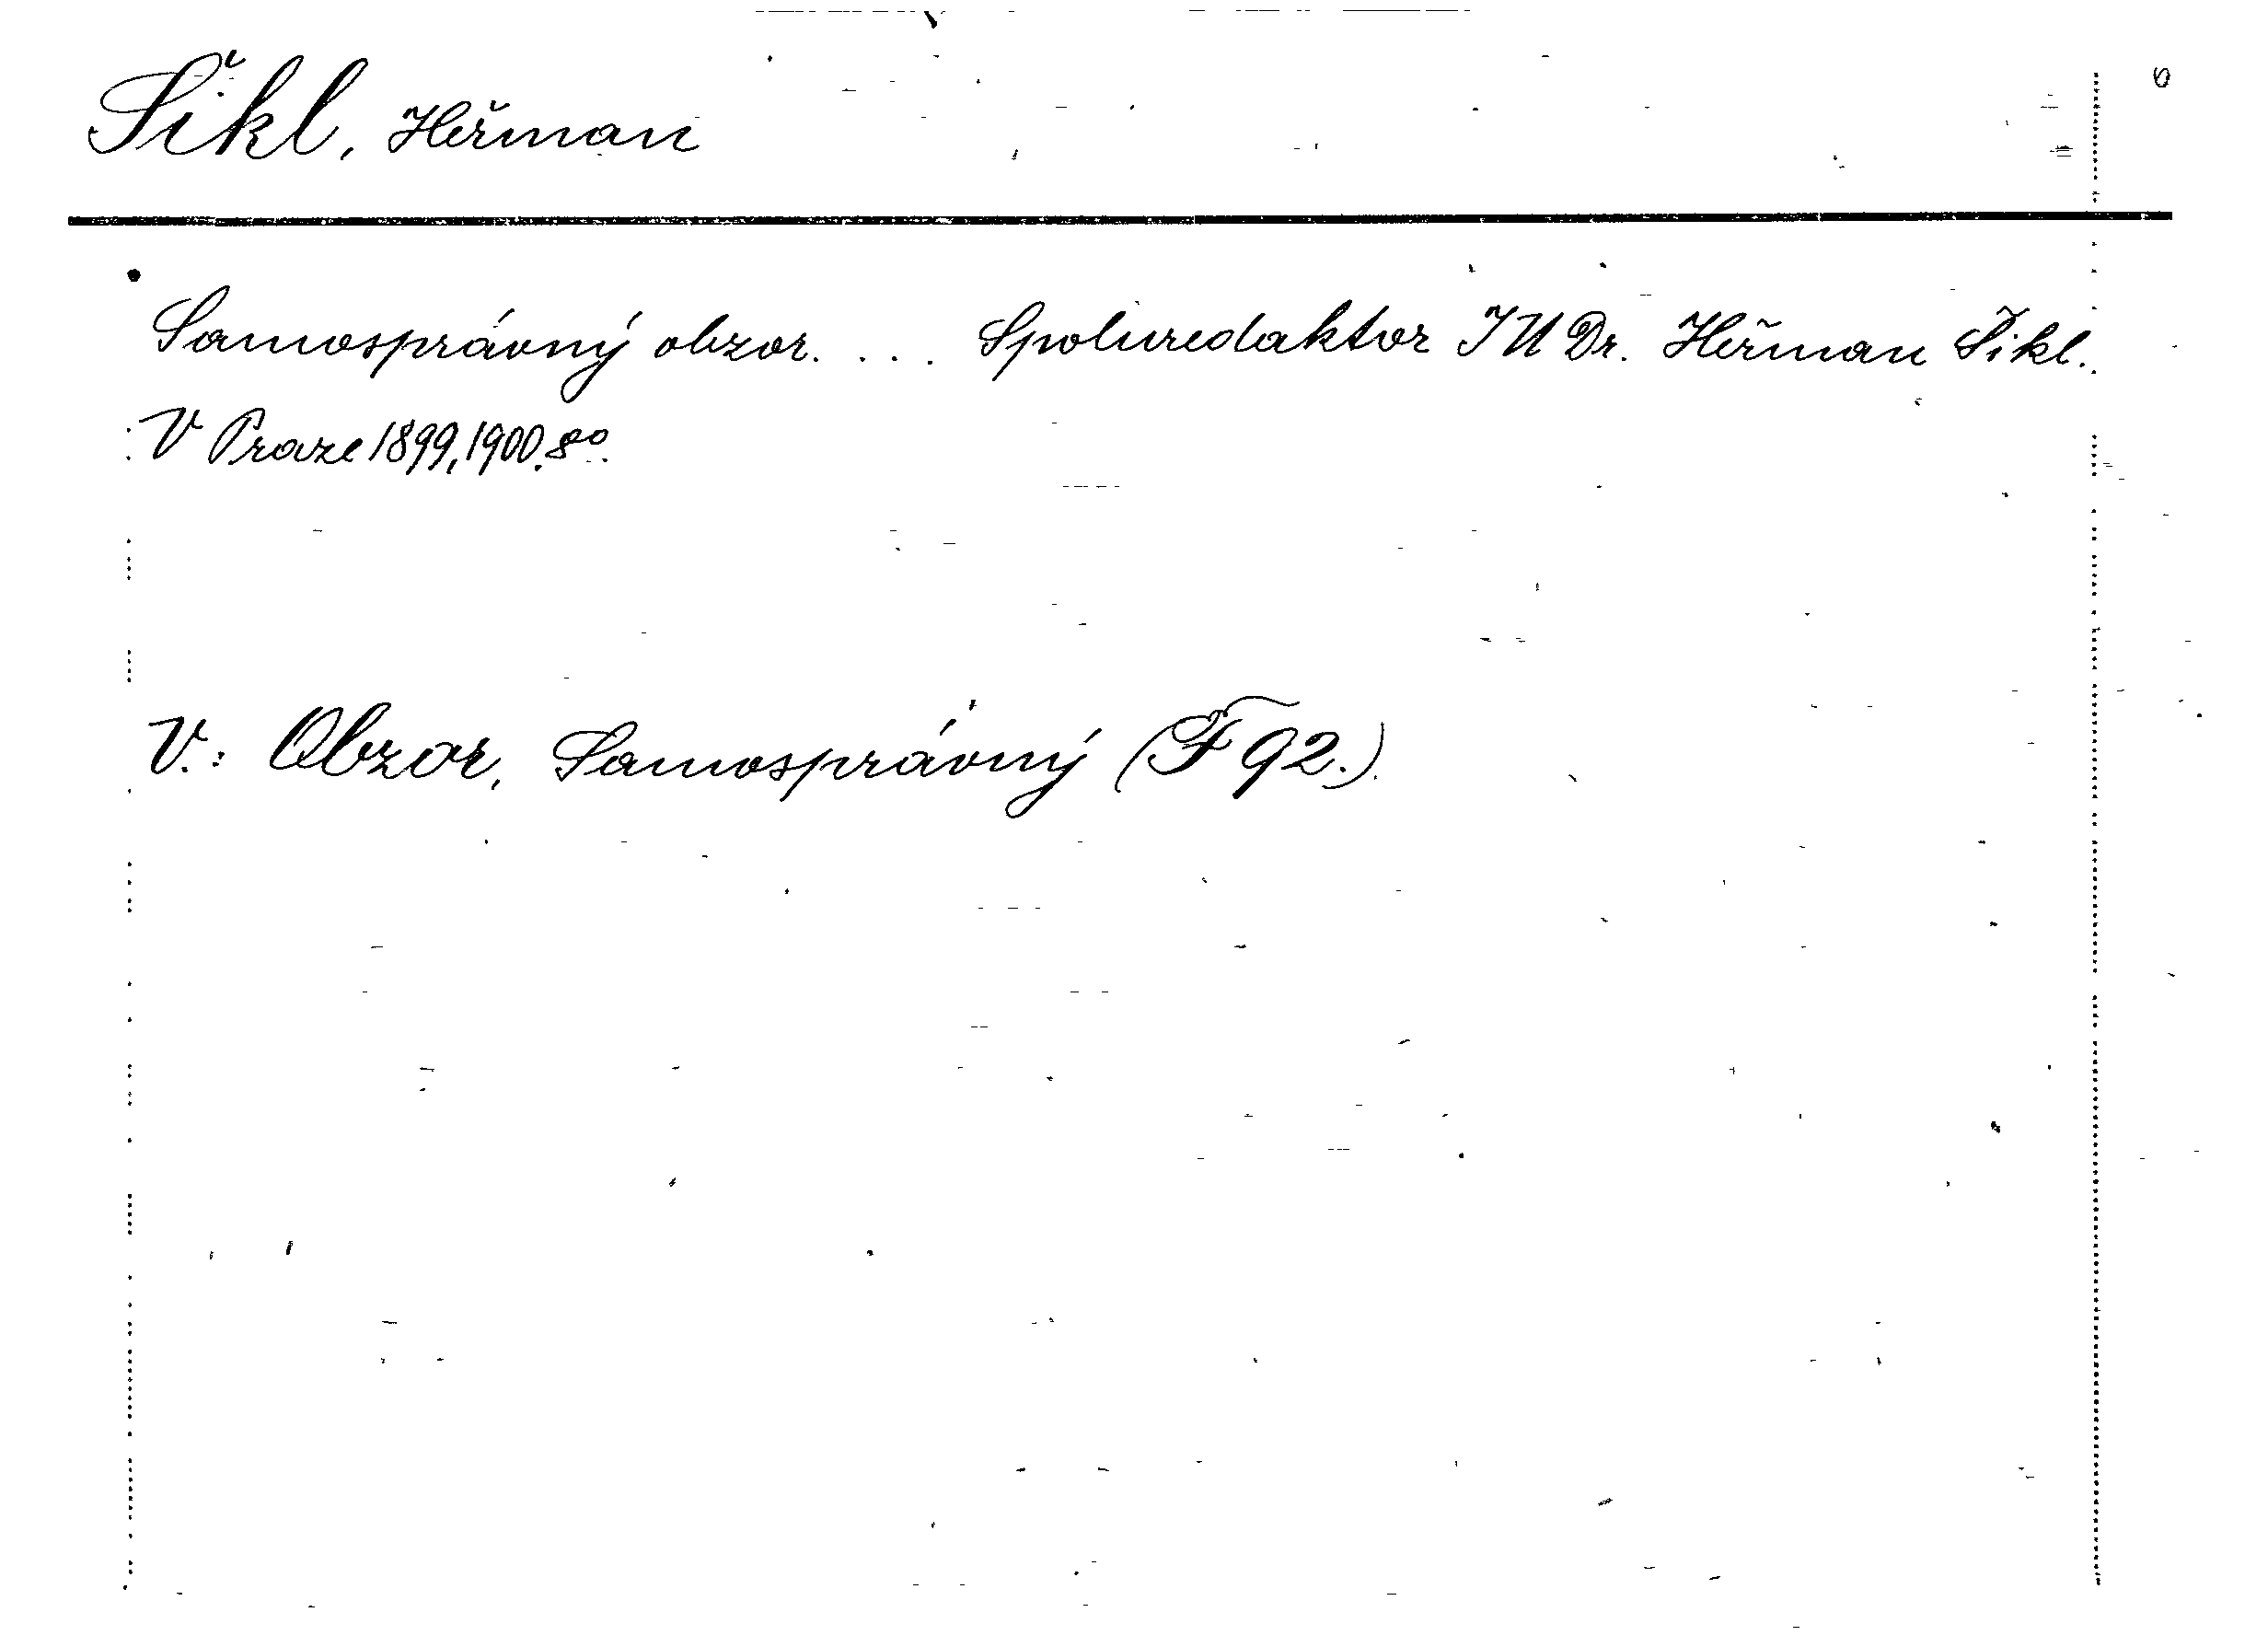 Šikl, Heřman
Samosprávný obzor. ... Spoluredaktor JUDr. Heřman Šikl.
V Praze 1899, 1900. 8°.
V.: Obzor, Samosprávný (F 92.)